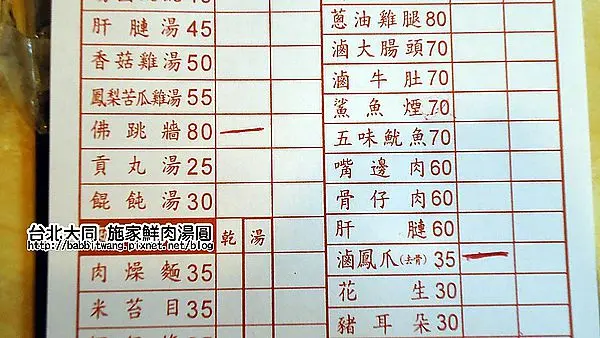 肝腱湯45
香菇雞湯50
鳳梨苦瓜雞湯55
佛跳牆80
貢丸湯25
餛飩湯30
乾 湯
肉燥麵35
米苔目35
蔥油雞腿80
滷大腸頭70
滷牛肚70
鯊魚煙70
五味魷魚70
嘴邊肉60
骨仔肉60
肝腱60
滷鳳爪(去骨)35
花生30
豬耳朵30
台北大同 施家鮮肉湯圓
http://babbitwang.pixnet.net/blog